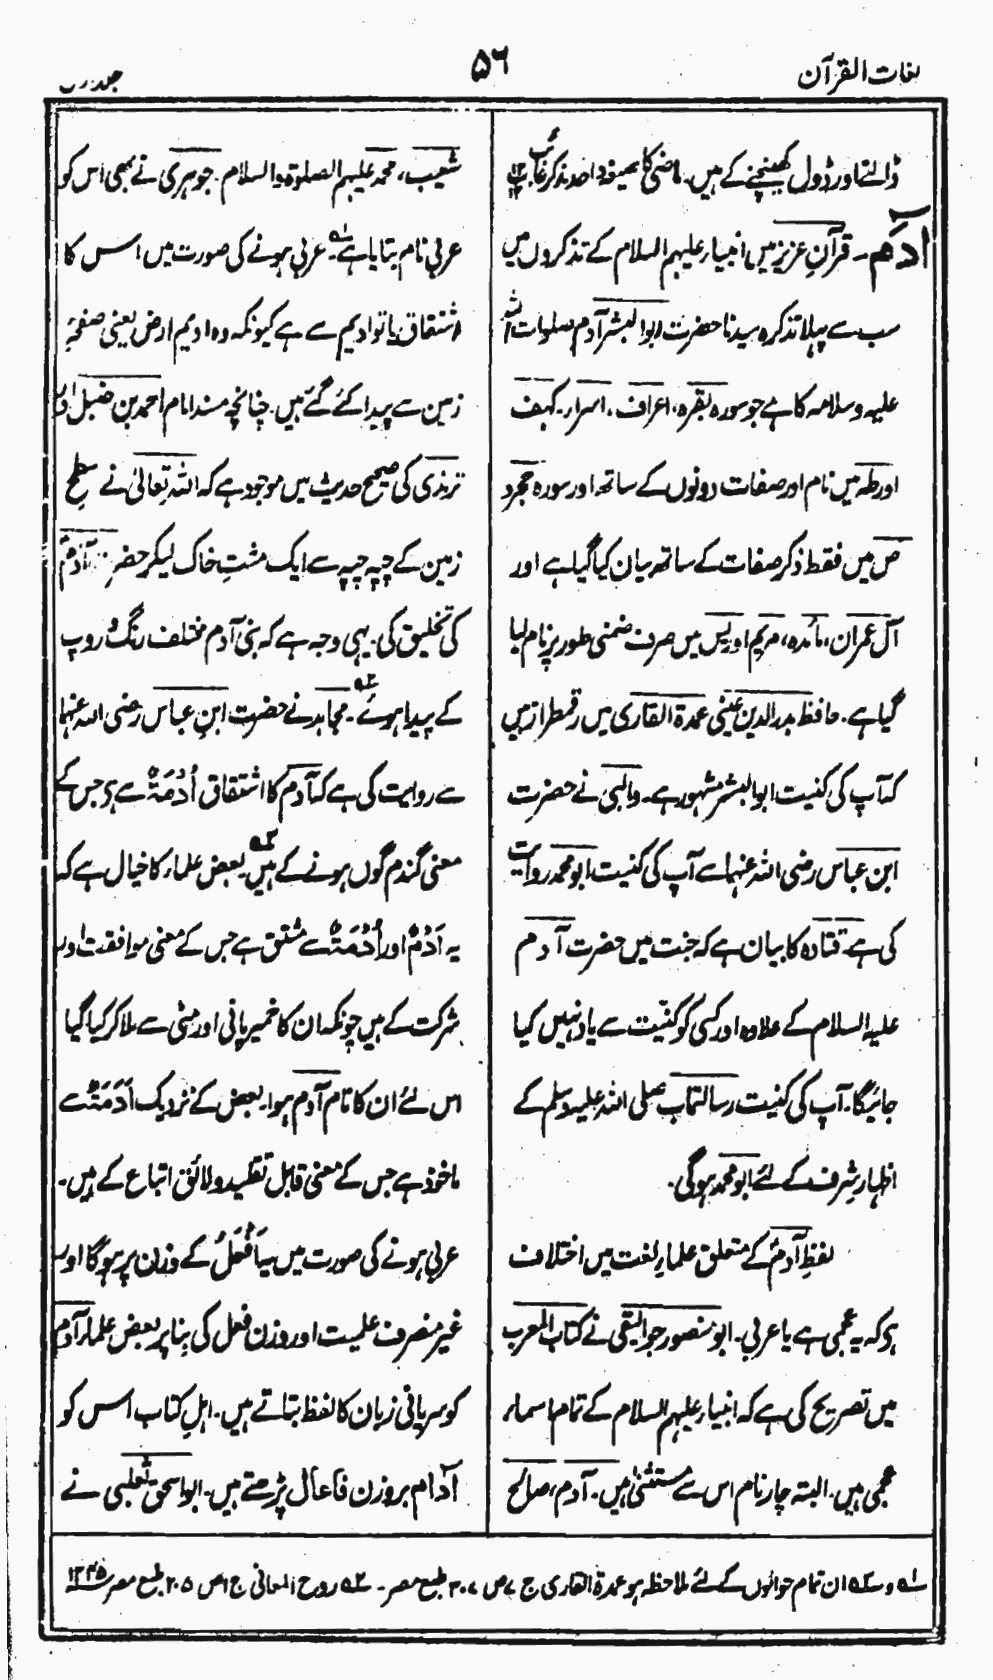 لغات القرآن
۵۶
جلد
ڈالنے اور ڈول کھینچنے کے ہیں۔ ماضی کا صیغہ واحد مذکر غائب
اٰدَم۔ قرآنِ عزیز میں انبیاء علیہم السلام کے تذکروں میں
سب سے پہلا تذکرہ سیدنا حضرت ابو البشر آدم صلوات اللہ
علیہ وسلامہ کا ہے جو سورہ بقرہ، اعراف، اسراء، کہف
اور طہ میں نام اور صفات دونوں کے ساتھ اور سورہ حجر و
ص میں فقط ذکر صفات کے ساتھ بیان کیا گیا ہے اور
آل عمران، مائدہ، مریم اور یٰس میں صرف ضمنی طور پر نام لیا
گیا ہے۔ حافظ بدر الدین عینی عمدۃ القاری میں رقمطراز ہیں
کہ آپ کی کنیت ابو البشر مشہور ہے۔ والبی نے حضرت
ابن عباس رضی اللہ عنہما سے آپ کی کنیت ابو محمد روایت
کی ہے۔ قتادہ کا بیان ہے کہ جنت میں حضرت آدم
علیہ السلام کے علاوہ اور کسی کو کنیت سے یاد نہیں کیا
جائیگا۔ آپ کی کنیت رسالتمآب صلی اللہ علیہ وسلم کے
اظہارِ شرف کے لئے ابو محمد ہوگی۔
لفظِ آدم کے متعلق علماءِ لغت میں اختلاف
ہے کہ یہ عجمی ہے یا عربی۔ ابو منصور جوالیقی نے کتاب المعرب
میں تصریح کی ہے کہ انبیاء علیہم السلام کے تمام اسماء
عجمی ہیں۔ البتہ چار نام اس سے مستثنیٰ ہیں۔ آدم، صالح
شعیب، محمد علیہم الصلوۃ والسلام۔ جوہری نے بھی اس کو
عربی نام بتایا ہے۔ عربی ہونے کی صورت میں اس کا
اشتقاق یا تو ادیم سے ہے کیونکہ وہ ادیم ارض یعنی صفحۂ
زمین سے پیدا کئے گئے ہیں۔ چنانچہ مسند امام احمد بن حنبل اور
ترمذی کی صحیح حدیث میں موجود ہے کہ اللہ تعالیٰ نے سطح
زمین کے چپہ چپہ سے ایک مشتِ خاک لیکر حضرت آدم
کی تخلیق کی۔ یہی وجہ ہے کہ بنی آدم مختلف رنگ و روپ
کے پیدا ہوئے ۲؎۔ مجاہد نے حضرت ابنِ عباس رضی اللہ عنہا
سے روایت کی ہے کہ آدم کا اشتقاق اُدْمَۃٌ سے ہے جس کے
معنی گندم گوں ہونے کے ہیں ۳؎۔ بعض علماء کا خیال ہے کہ
یہ اَدْمٌ اور اُدْمَۃٌ سے مشتق ہے جس کے معنی موافقت اور
شرکت کے ہیں چونکہ ان کا خمیر پانی اور مٹی سے ملا کر کیا گیا
اس لئے ان کا نام آدم ہوا۔ بعض کے نزدیک اَدَمَۃٌ سے
ماخوذ ہے جس کے معنی قابلِ تقلید و لائق اتباع کے ہیں۔
عربی ہونے کی صورت میں یہ اَفْعَلُ کے وزن پر ہوگا اور
غیر منصرف علمیت اور وزن فعل کی بنا پر بعض علماء آدم
کو سریانی زبان کا لفظ بتاتے ہیں۔ اہلِ کتاب اس کو
آدام بروزن فاعال پڑھتے ہیں۔ ابو اسحٰق ثعلبی نے
۱؎ و ۲؎ ان تمام حوالوں کے لئے ملاحظہ ہو عمدۃ القاری ج ۷ ص ۳۰۷ طبع مصر۔ ۳؎ روح المعانی ج ۱ ص ۲۰۵ طبع مصر ۱۳۴۵